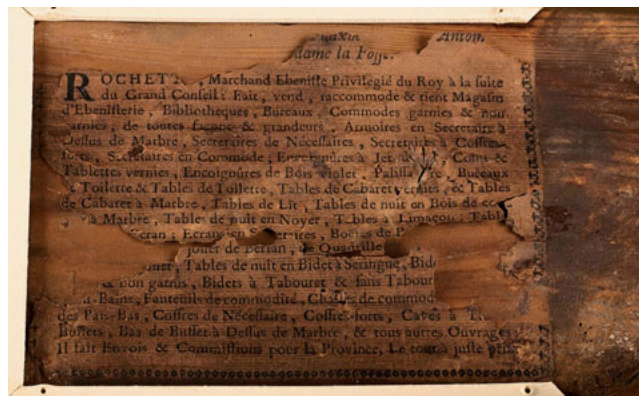 Antoin.
dame la Fosse.
ROCHETTE, Marchand Ebeniste Privilegié du Roy à la suite
du Grand Conseil : Fait, vend, raccommode & tient Magasin
d'Ebenisterie, Bibliotheques, Bureaux, Commodes garnies & non
garnies, de toutes & grandeurs, Armoires en Secretaire à
Dessus de Marbre, Secretaires de Nécessaires, Secretaires à Coffres-
forts, Secretaires en Commode ; Encoignûres à Coins &
Tablettes vernies, Encoignûres de Bois violet, Palissa re, Bureaux
de Toilette & Tables de Toilette, Tables de Cabaret vernies, & Tables
de Cabaret à Marbre, Tables de Lit, Tables de nuit en Bois de
à Marbre, Tables de nuit en Noyer, Tables à Limaçon ; Tabl
Ecran ; Ecrans en S retaires, Boetes de P
jouer de Berlan, de Quadrille
ouer, Tables de nuit en Bidet à Seringue, Bid
& non garnis, Bidets à Tabouret & sans Tabour
Bains, Fauteuils de commodité, Chaises de commod
des Païs-Bas, Coffres de Nécessaire, Coffres-forts, Caves à
Buffets, Bas de Buffet à Dessus de Marbre, & tous autres Ouvrages
Il fait Envois & Commissions pour la Province, Le tout à juste prix